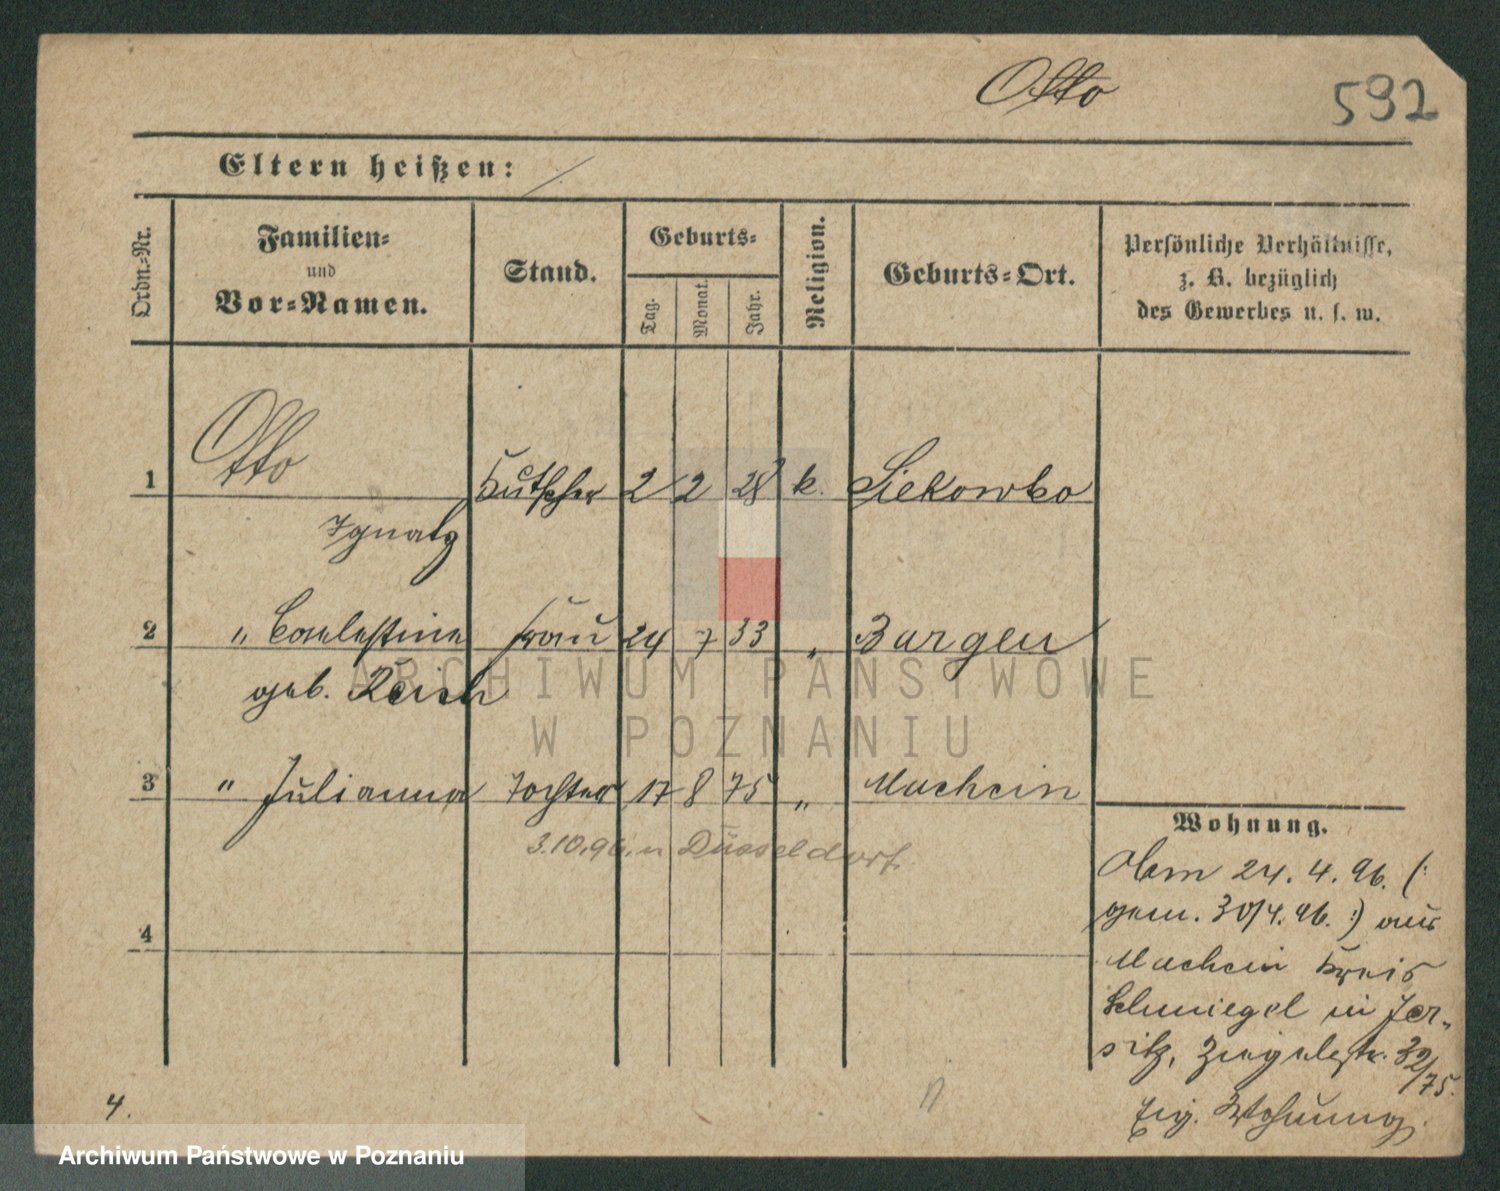 Otto
592
Eltern heißen:
Ordn.-Nr.
Familien-
und
Vor-Namen.
Stand.
Geburts-
Tag.
Monat.
Jahr.
Religion.
Geburts-Ort.
Persönliche Verhältnisse,
z. B. bezüglich
des Gewerbes u. s. w.
1 Otto Kutscher 2 2 28 k. Siekowko
Ignatz
2 " Coelestine Frau 24 7 33 " Bargen
geb. Reich
3 " Julianna Tochter 17 8 75 " Machcin
3.10.96. n Düsseldorf.
4
Wohnung.
24. 4. 96. (:
gem. 30/4. 96. :) aus
Machcin Kreis
Schmiegel in Jer-
sitz, Ziegelstr. 32/75.
Eig. Wohnung.
4.
ARCHIWUM PAŃSTWOWE
W POZNANIU
Archiwum Państwowe w Poznaniu